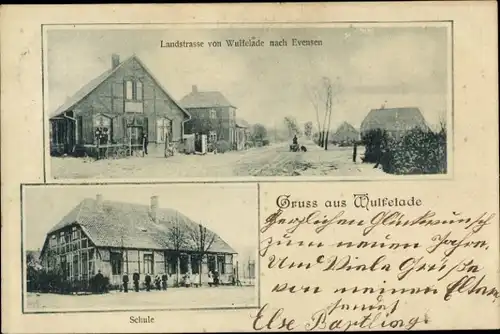 Landstrasse von Wulfelade nach Evensen
Gruss aus Wulfelade
Herzlichen Glückwunsch
zum neuen Jahre.
Und Viele Grüße
von meinen Eltern
Else Bartling.
Schule